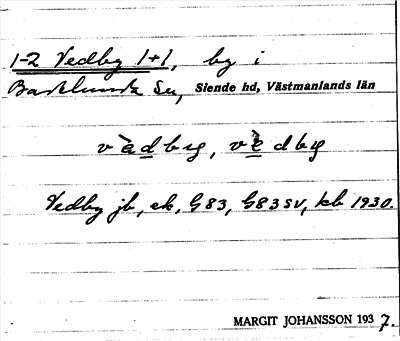 1-2 Vedby 1+1, by i
Barkarö Sn, Siende hd, Västmanlands län
v à d b y, v è d b y
Vedby jb, ek, G 83, G 83 SV, kb 1930.
MARGIT JOHANSSON 1937.